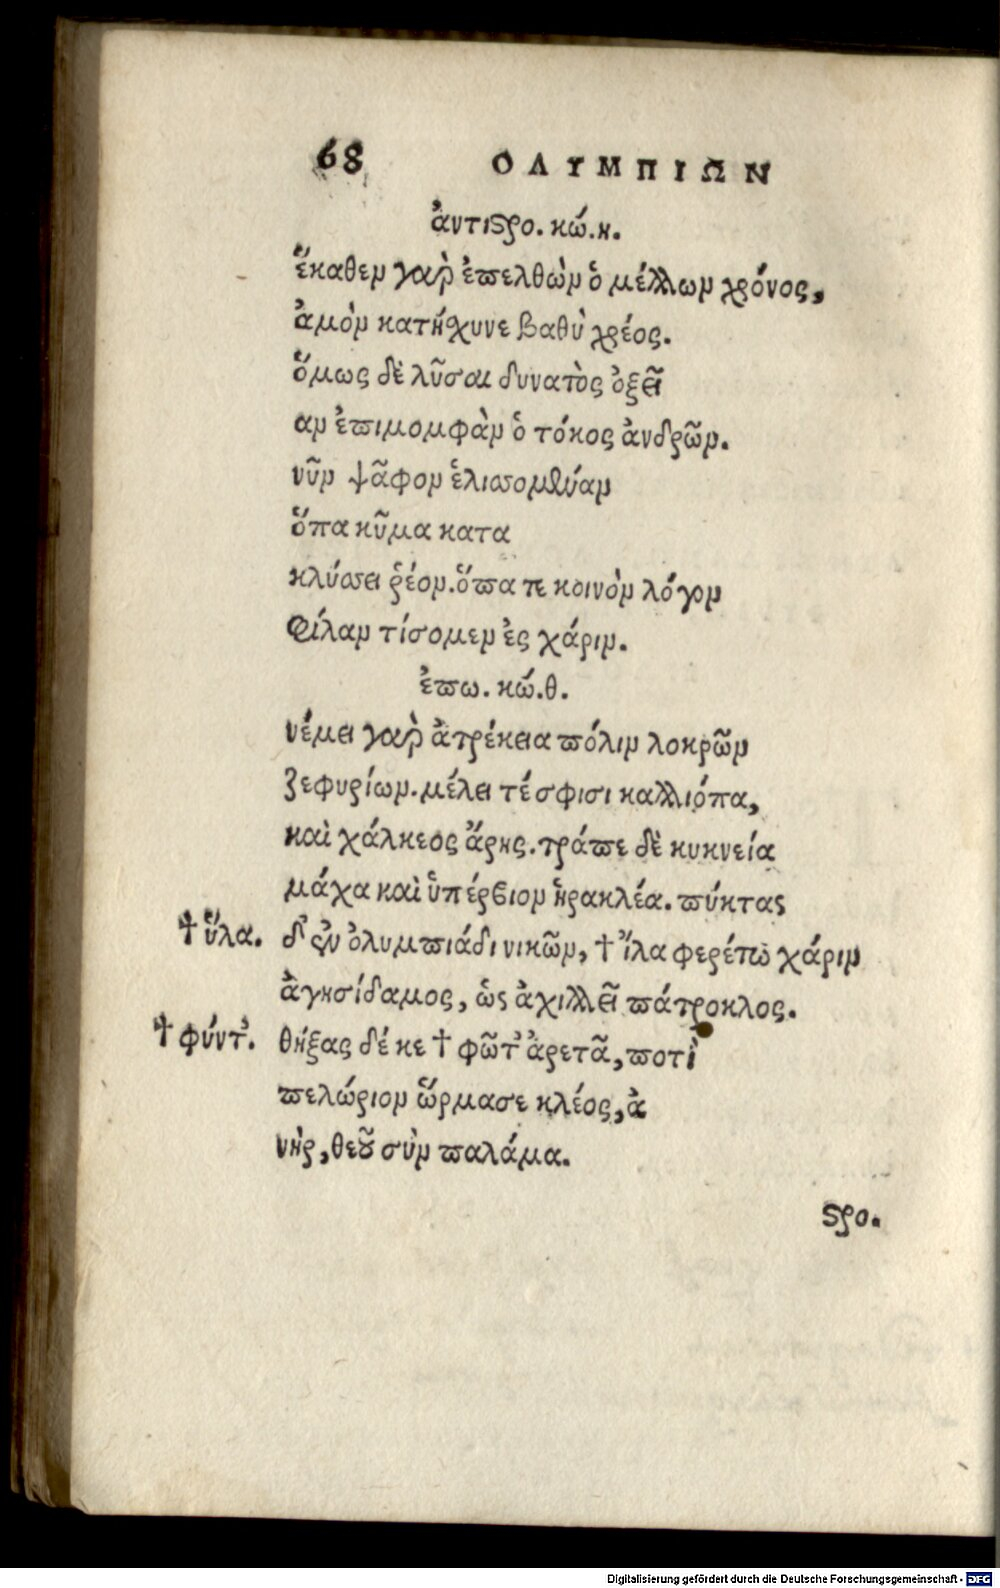 68 ΟΛΥΜΠΙΩΝ
ἀντιστρο. κώ. η.
ἕκαθεν γὰρ ἐπελθὼν ὁ μέλλων χρόνος,
ἀμὸν κατῄχυνε βαθὺ χρέος.
ὅμως δὲ λῦσαι δυνατὸς ὀξεῖ
αν ἐπιμομφὰν ὁ τόκος ἀνδρῶν.
νῦν ψᾶφον ἑλισσομέναν
ὅπα κῦμα κατα
κλύσσει ῥέον. ὅπα τε κοινὸν λόγον
φίλαν τίσομεν ἐς χάριν.
ἐπω. κώ. θ.
νέμει γὰρ ἀτρέκεια πόλιν λοκρῶν
ζεφυρίων. μέλει τέ σφισι καλλιόπα,
καὶ χάλκεος ἄρης. τράπε δὲ κυκνεία
μάχα καὶ ὑπέρβιον ἡρακλέα. πύκτας
† ὕλα. δ' ἐν ὀλυμπιάδι νικῶν, † ἴλα φερέτω χάριν
ἀγησίδαμος, ὡς ἀχιλλεῖ πάτροκλος.
† φύντ'. θήξας δέ κε † φῶτ' ἀρετᾶ, ποτὶ
πελώριον ὥρμασε κλέος, ἀ
νὴρ, θεοῦ σὺν παλάμα.
στρο.
Digitalisierung gefördert durch die Deutsche Forschungsgemeinschaft - DFG